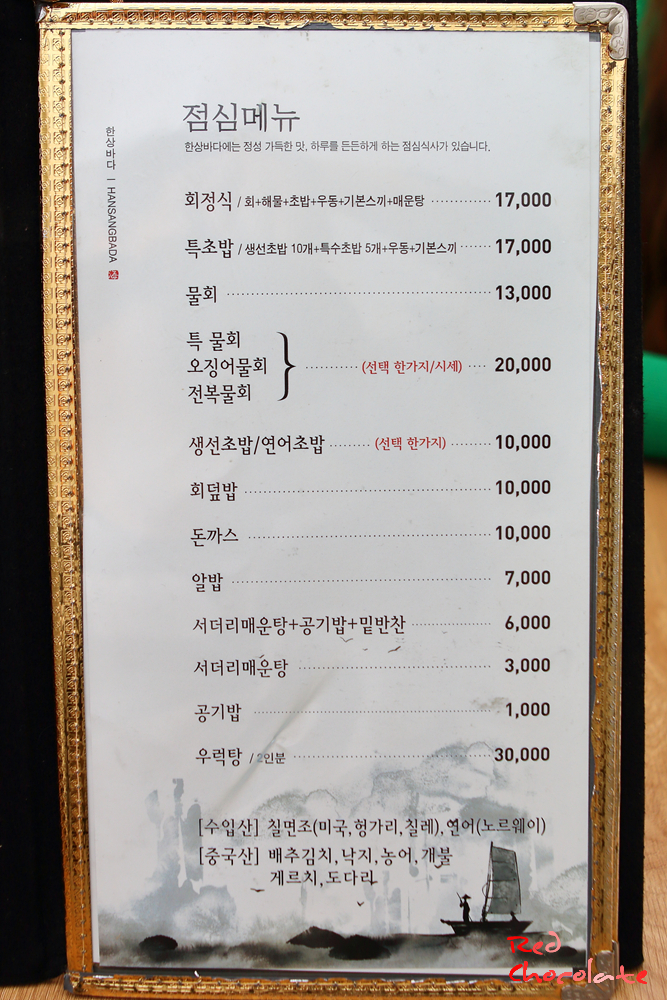 점심메뉴
한상바다에는 정성 가득한 맛, 하루를 든든하게 하는 점심식사가 있습니다.
한상바다 | HANSANGBADA
회정식 / 회+해물+초밥+우동+기본스끼+매운탕 17,000
특초밥 / 생선초밥 10개+특수초밥 5개+우동+기본스끼 17,000
물회 13,000
특 물회
오징어물회 (선택 한가지/시세) 20,000
전복물회
생선초밥/연어초밥 (선택 한가지) 10,000
회덮밥 10,000
돈까스 10,000
알밥 7,000
서더리매운탕+공기밥+밑반찬 6,000
서더리매운탕 3,000
공기밥 1,000
우럭탕 / 2인분 30,000
[수입산] 칠면조(미국,헝가리,칠레),연어(노르웨이)
[중국산] 배추김치,낙지,농어,개불
게르치,도다리
Red
Chocolate